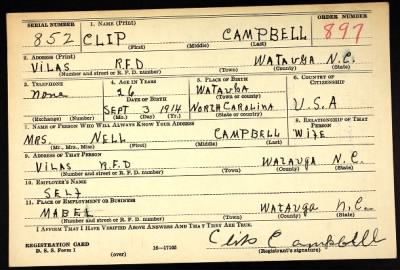 SERIAL NUMBER 1. NAME (Print) ORDER NUMBER
852 CLIP CAMPBELL 897
(First) (Middle) (Last)
2. ADDRESS (Print)
VILAS R.F.D WATAUGA N.C.
(Number and street or R. F. D. number) (Town) (County) (State)
3. TELEPHONE 4. AGE IN YEARS 5. PLACE OF BIRTH 6. COUNTRY OF CITIZENSHIP
None 26 WATAUGA
DATE OF BIRTH (Town or county)
SEPT 3 1914 NORTH CAROLINA U.S.A
(Exchange) (Number) (Mo.) (Day) (Yr.) (State or country)
7. NAME OF PERSON WHO WILL ALWAYS KNOW YOUR ADDRESS 8. RELATIONSHIP OF THAT PERSON
MRS. NELL CAMPBELL WIFE
(Mr., Mrs., Miss) (First) (Middle) (Last)
9. ADDRESS OF THAT PERSON
VILAS R.F.D WATAUGA N.C.
(Number and street or R. F. D. number) (Town) (County) (State)
10. EMPLOYER'S NAME
SELF
11. PLACE OF EMPLOYMENT OR BUSINESS
MABEL WATAUGA N.C.
(Number and street or R. F. D. number) (Town) (County) (State)
I AFFIRM THAT I HAVE VERIFIED ABOVE ANSWERS AND THAT THEY ARE TRUE.
Clip Campbell
REGISTRATION CARD 16—17105 (Registrant's signature)
D. S. S. Form 1 (over)